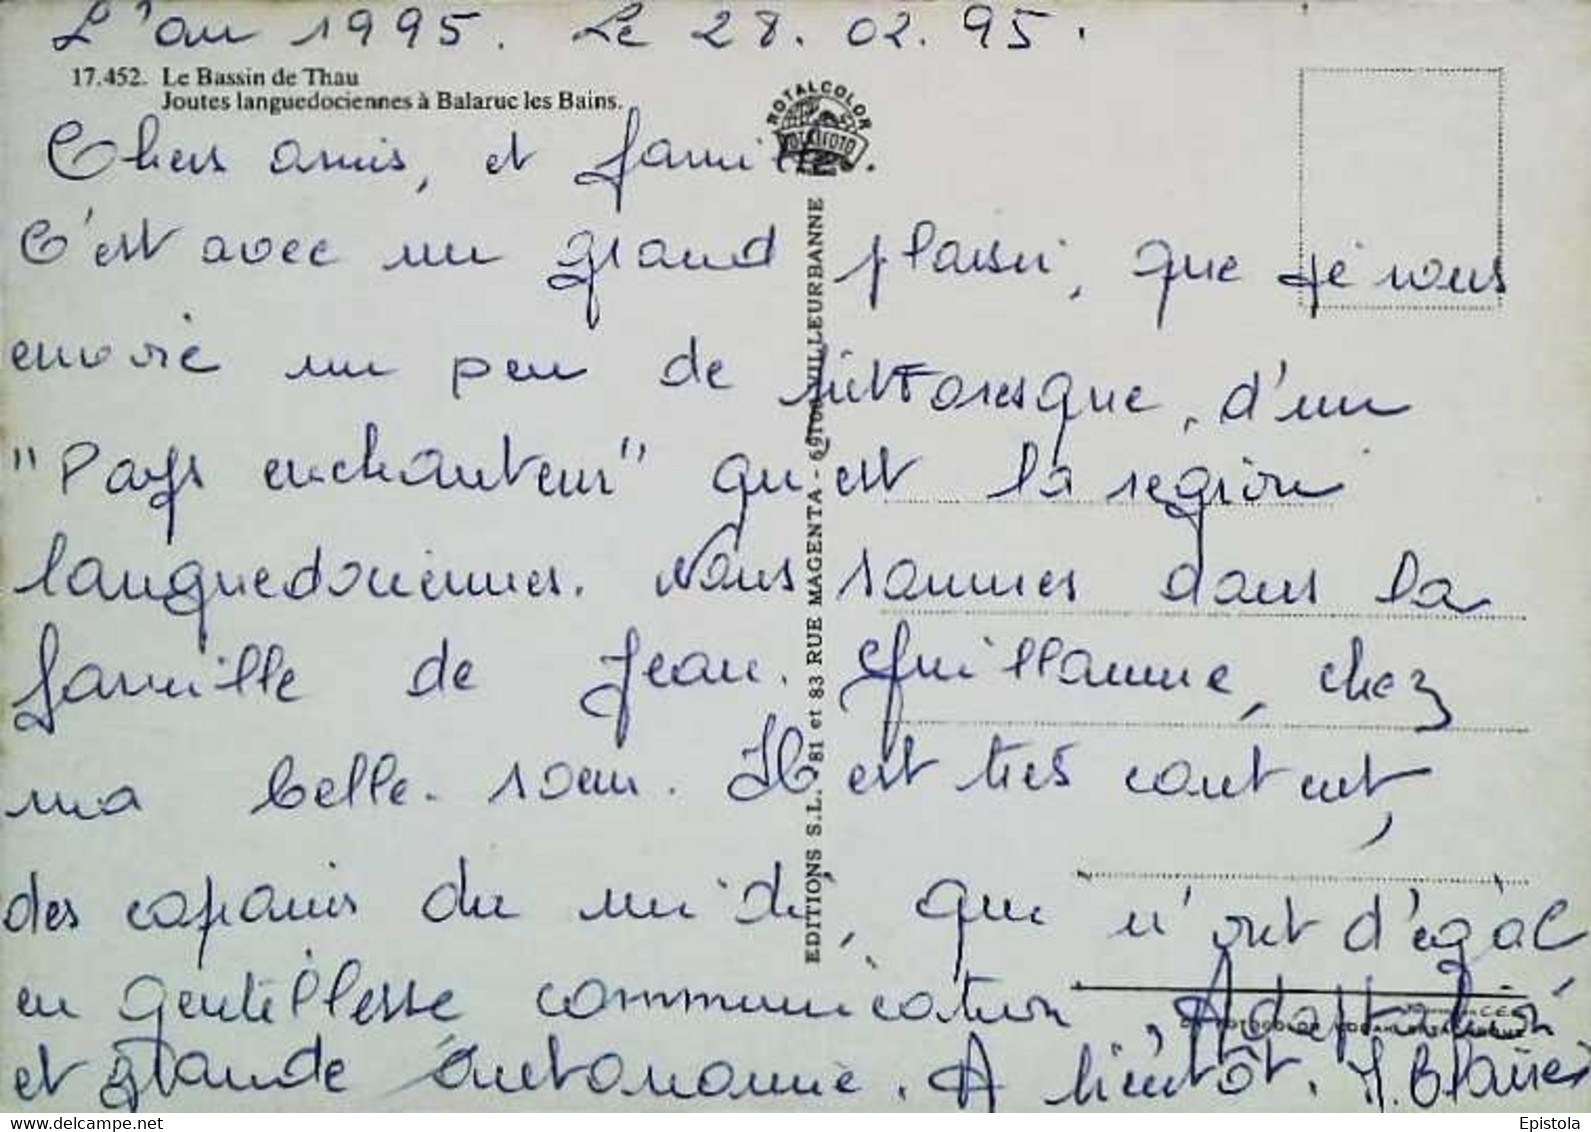 L'an 1995. Le 28.02.95.
17.452. Le Bassin de Thau
Joutes languedociennes à Balaruc les Bains.
ROTALCOLOR
Chers amis, et famille.
C'est avec un grand plaisir, que je vous
envoie un peu de pittoresque, d'un
"Pays enchanteur" qu'est la région
languedociennes. Nous sommes dans la
famille de Jean. Guillaume, chez
ma belle-sœur. Il est très content,
des copains du midi, que n'ont d'égal
en gentillesse communication, Adaptation
et grande autonomie. A bientôt.
EDITIONS S.L. 81 et 83 RUE MAGENTA - 69100 VILLEURBANNE
www.delcampe.net
Epistola